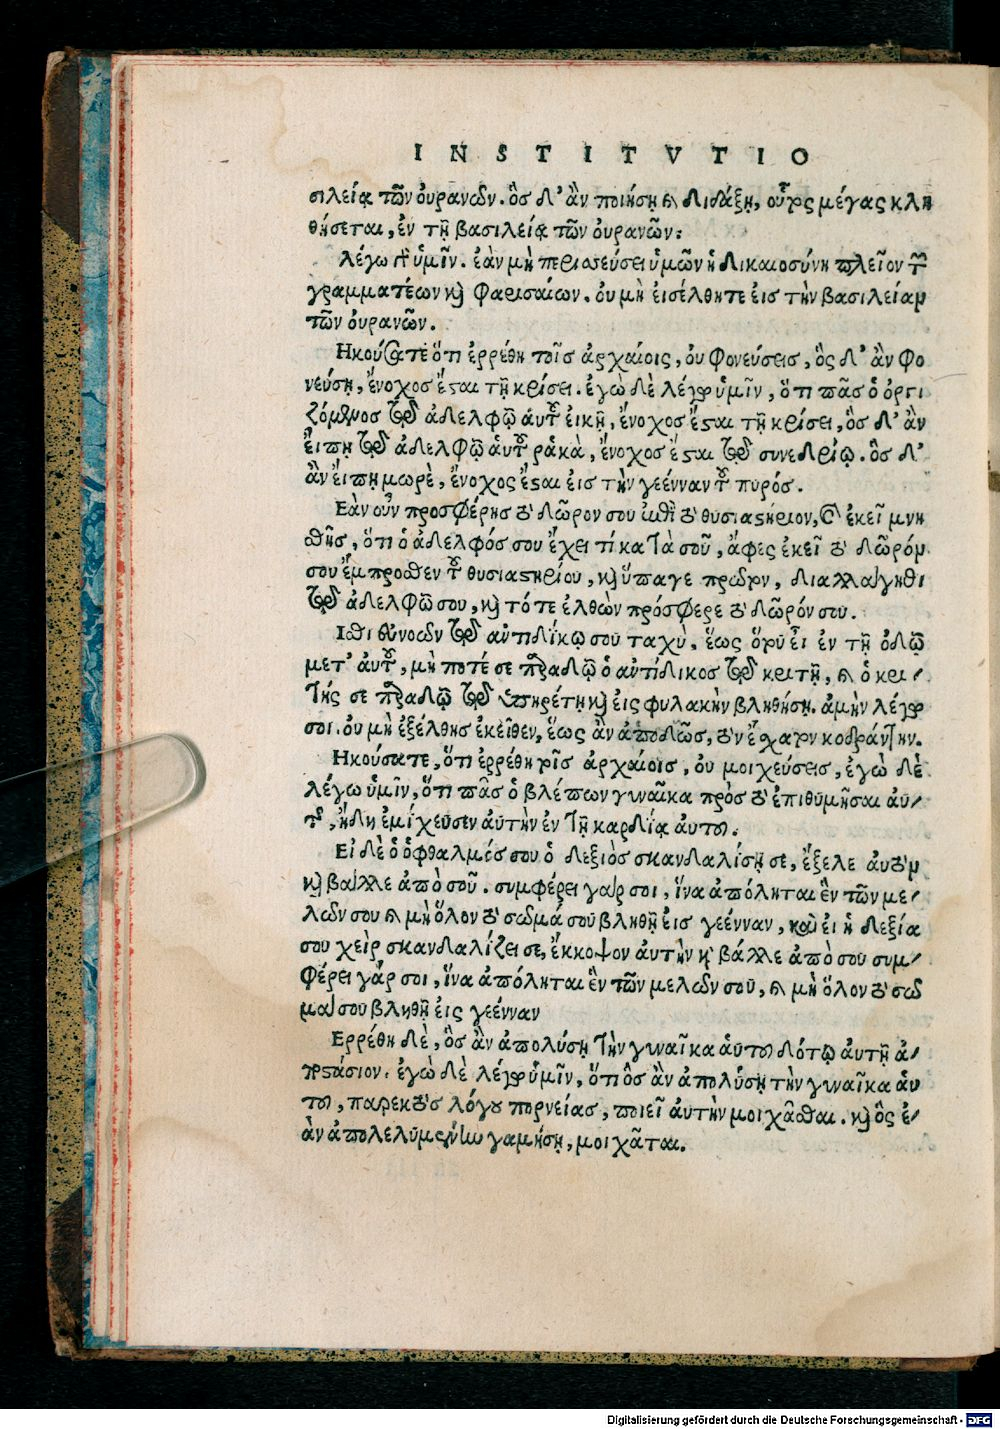 INSTITVTIO
σιλείᾳ τῶν ὀυρανῶν. ὃς δ’ ἂν ποιήσῃ καὶ διδάξῃ, οὗτος μέγας κλη
θήσεται, ἐν τῇ βασιλείᾳ τῶν ὀυρανῶν:
λέγω γὰρ ὑμῖν. ἐὰν μὴ περισσεύσει ὑμῶν ἡ δικαιοσύνη πλεῖον τῶν
γραμματέων καὶ φαρισαίων. ὀυ μὴ ἐισέλθητε ἐις τὴν βασιλείαν
τῶν ὀυρανῶν.
Ηκούσατε ὅτι ἐρρέθη τοῖς ἀρχαίοις, ὀυ φονεύσεις, ὃς δ’ ἂν φο
νεύσῃ, ἔνοχος ἔσται τῇ κρίσει. ἐγὼ δὲ λέγω ὑμῖν, ὅτι πᾶς ὁ ὀργι
ζόμενος τῷ ἀδελφῷ ἁυτοῦ ἐικῆ, ἔνοχος ἔσται τῇ κρίσει, ὃς δ’ ἂν
ἔιπῃ τῷ ἀδελφῷ ἁυτοῦ ῥάκὰ, ἔνοχος ἔσται τῷ συνεδρίῳ. ὃς δ’
ἂν ἔιπῃ μωρὲ, ἔνοχος ἔσται ἐις τὴν γεένναν τοῦ πυρός.
Εὰν οὖν προσφέρῃς τὸ δῶρον σου ἐπὶ τὸ θυσιαστήριον, καὶ ἐκεῖ μνη
σθῇς, ὅτι ὁ ἀδελφός σου ἔχει τί κατὰ σοῦ, ἄφες ἐκεῖ τὸ δῶρόν
σου ἔμπροσθεν τοῦ θυσιαστηρίου, καὶ ὕπαγε πρῶτον, διαλλάγηθι
τῷ ἀδελφῷ σου, καὶ τότε ἐλθὼν πρόσφερε τὸ δῶρόν σου.
Ισθι ἐυνοῶν τῷ ἀντιδίκῳ σοῦ ταχὺ, ἕως ὅτου εἶ ἐν τῇ ὁδῷ
μετ’ ἀυτοῦ, μὴ ποτέ σε παραδῷ ὁ ἀντίδικος τῷ κριτῇ, καὶ ὁ κρι
τής σε παραδῷ τῷ ὑπηρέτῃ καὶ ἐις φυλακὴν βληθήσῃ. ἀμὴν λέγω
σοι. ὀυ μὴ ἐξέλθῃς ἐκεῖθεν, ἕως ἂν ἀποδῷς, τὸν ἔσχατον κοδράντην.
Ηκούσατε, ὅτι ἐρρέθη τοῖς ἀρχαίοις, ὀυ μοιχεύσεις, ἐγὼ δὲ
λέγω ὑμῖν, ὅτι πᾶς ὁ βλέπων γυναῖκα πρὸς τὸ ἐπιθυμῆσαι ἀυ
τῆς, ἤδη ἐμοίχευσεν ἀυτὴν ἐν τῇ καρδίᾳ ἀυτοῦ.
Ει δὲ ὁ ὀφθαλμός σου ὁ δεξιὸς σκανδαλίσῃ σε, ἔξελε ἀυτὸν
καὶ βάλλε ἀπὸ σοῦ. συμφέρει γάρ σοι, ἵνα ἀπόληται ἓν τῶν με
λῶν σου καὶ μὴ ὅλον τὸ σῶμά σοῦ βληθῇ ἐις γεένναν, καὶ ἐι ἡ δεξία
σου χεὶρ σκανδαλίζει σε, ἔκκοψον ἀυτὴν καὶ βάλλε ἀπὸ σοῦ συμ
φέρει γάρ σοι, ἵνα ἀπόληται ἓν τῶν μελῶν σοῦ, καὶ μὴ ὅλον τὸ σῶ
μα σοῦ βληθῇ ἐις γεένναν
Ερρέθη δὲ, ὃς ἂν ἀπολύσῃ τὴν γυναῖκα ἁυτοῦ δότω ἀυτῇ ἀ
ποστάσιον. ἐγὼ δὲ λέγω ὑμῖν, ὅτι ὃς ἂν ἀπολύσῃ τὴν γυναῖκα ἁυ
τοῦ, παρεκτὸς λόγου πορνείας, ποιεῖ ἀυτὴν μοιχᾶσθαι. καὶ ὃς ἐ
ὰν ἀπολελυμένην γαμήσῃ, μοιχᾶται.
Digitalisierung gefördert durch die Deutsche Forschungsgemeinschaft - DFG